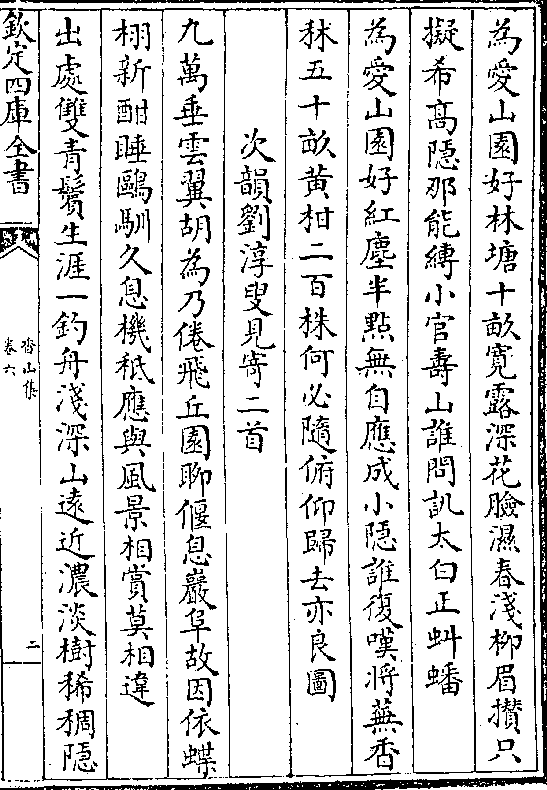 為愛山園好林塘十畝寛露深花臉濕春淺柳眉攢只
擬希髙隠那能縛小官壽山誰問訊太白正蚪蟠
為愛山園好紅塵半㸃無自應成小隠誰復嘆將蕪香
秫五十畝黄柑二百株何必隨俯仰歸去亦良圖
次韻劉淳叟見寄二首
九萬垂雲翼胡為乃倦飛丘園聊偃息巖阜故因依蝶
栩新酣睡鷗馴久息機秖應與風景相賞莫相違
出處雙青鬢生涯一釣舟淺深山遠近濃淡樹稀稠隠
欽定四庫全書
香山集
卷六
二